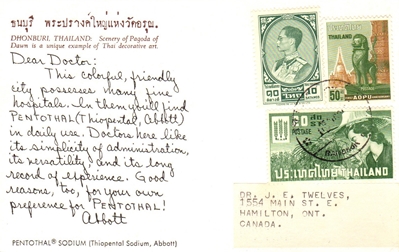 ธนบุรี พระปรางค์ใหญ่แห่งวัดอรุณ.
DHONBURI, THAILAND: Scenery of Pagoda of
Dawn is a unique example of Thai decorative art.
Dear Doctor:
This colorful, friendly
city possesses many fine
hospitals. In them you'll find
PENTOTHAL (Thiopental, Abbott)
in daily use. Doctors here like
its simplicity of administration,
its versatility and its long
record of experience. Good
reasons, too, for your own
preference for PENTOTHAL!
Abbott
PENTOTHAL® SODIUM (Thiopental Sodium, Abbott)
THAILAND
50
AOPU
POSTAGE
ประเทศไทย THAILAND
DR. J. E. TWELVES,
1554 MAIN ST. E.
HAMILTON, ONT.
CANADA.